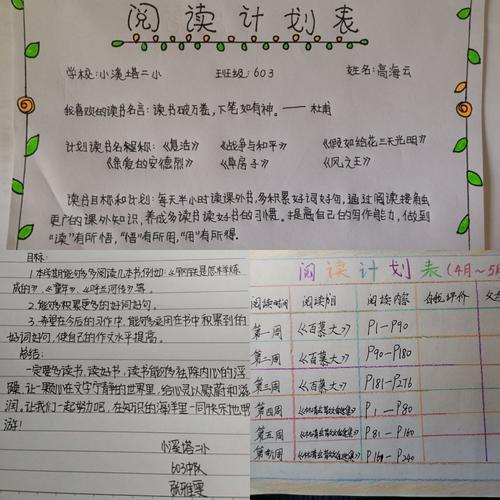 阅读计划表
学校:小溪塔二小 班级:603 姓名:高海云
我喜欢的读书名言:读书破万卷,下笔如有神。——杜甫
计划读书名称:《复活》 《战争与和平》 《假如给我三天光明》
《亲爱的安德烈》 《草房子》 《风之王》
读书目标和计划:每天半小时读课外书,多积累好词好句,通过阅读接触
更广的课外知识,养成多读书读好书的习惯。提高自己的写作能力,做到
“读”有所悟,“悟”有所用,“用”有所得.
目标:
1.本学期能够多多阅读几本书例如:《钢铁是怎样炼
成的》、《童年》、《呼兰河传》等。
2.能够积累更多的好词好句。
3.希望在今后的习作中,能够运用在书中积累到的
好词好句,使自己的作文水平提高。
总结:
一定要读书,读好书,读书能够祛除内心的浮
躁,让一颗心在文字宁静的世界里,给心灵以慰藉和滋
润,让我们一起努力吧,在知识的海洋里一同快乐地畅
游!
小溪塔二小
603中队
张雅雯
阅读计划表(4月~5月
阅读时间 阅读书目 阅读内容 自我评价 父
第一周 《百草大》 P1-P90
第二周 《百草大》 P90-P180
第三周 《百草大》 P181-P276
第四周 P1-P80
第五周 P81-P160
第六周 P240